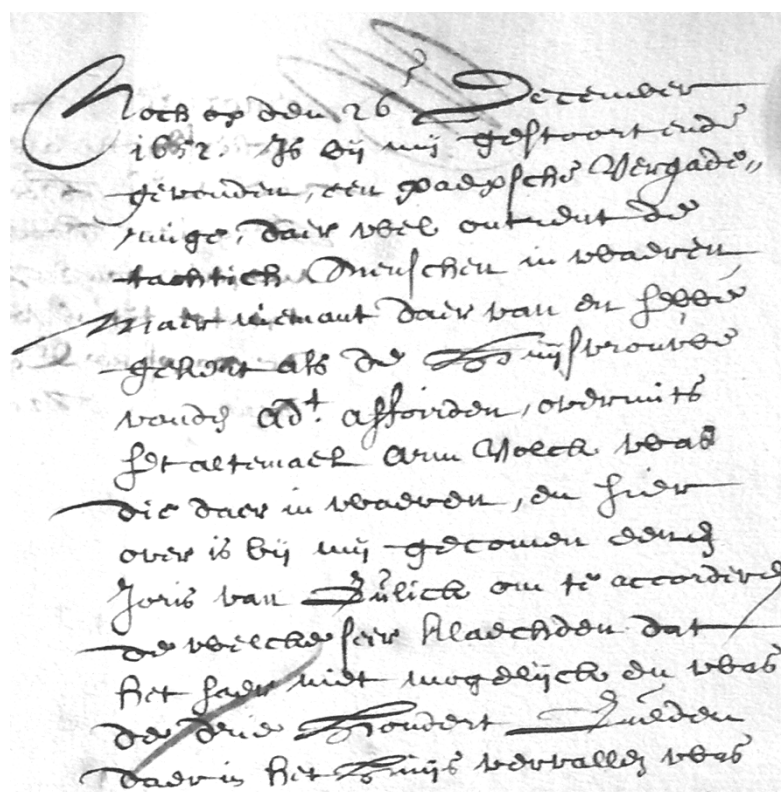 Noch op den 26 December
1652. Is bij mij gestoort ende
gevonden, een paepsche Vergade„
ringe, daer wel ontrent de
tachtich menschen in waeren
Maer niemant daer van en hebbe
gekent als de Huijsvrouwe
vanden adt. affoirden, overmits
het altemael arm Volck was
die daer in waeren, en hier
over is bij mij gecomen eenen
Joris van Zulich om te accorderen
de welcke seer klaechden dat
het haer niet mogelijck en was
de drie Hondert Gulden
daer in het Huijs vervallen was